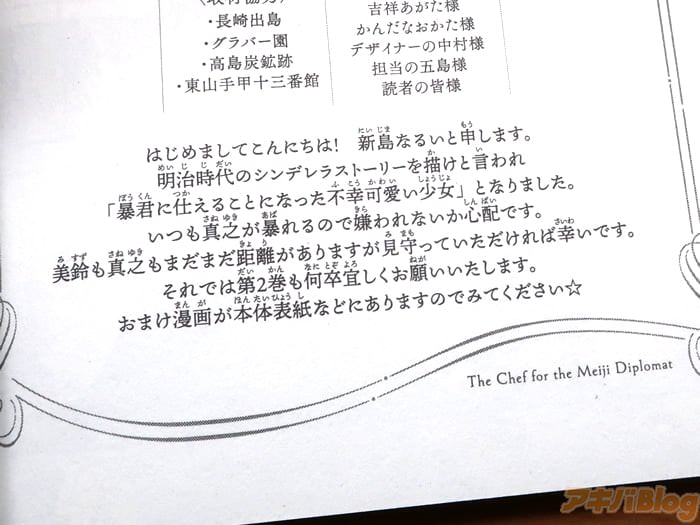 ・長崎出島
・グラバー園
・高島炭鉱跡
・東山手甲十三番館
吉祥あがた様
かんだなおかた様
デザイナーの中村様
担当の五島様
読者の皆様
はじめましてこんにちは! 新島なるいと申します。
明治時代のシンデレラストーリーを描けと言われ
「暴君に仕えることになった不幸可愛い少女」となりました。
いつも真之が暴れるので嫌われないか心配です。
美鈴も真之もまだまだ距離がありますが見守っていただければ幸いです。
それでは第2巻も何卒宜しくお願いいたします。
おまけ漫画が本体表紙などにありますのでみてください☆
The Chef for the Meiji Diplomat
アキバBlog